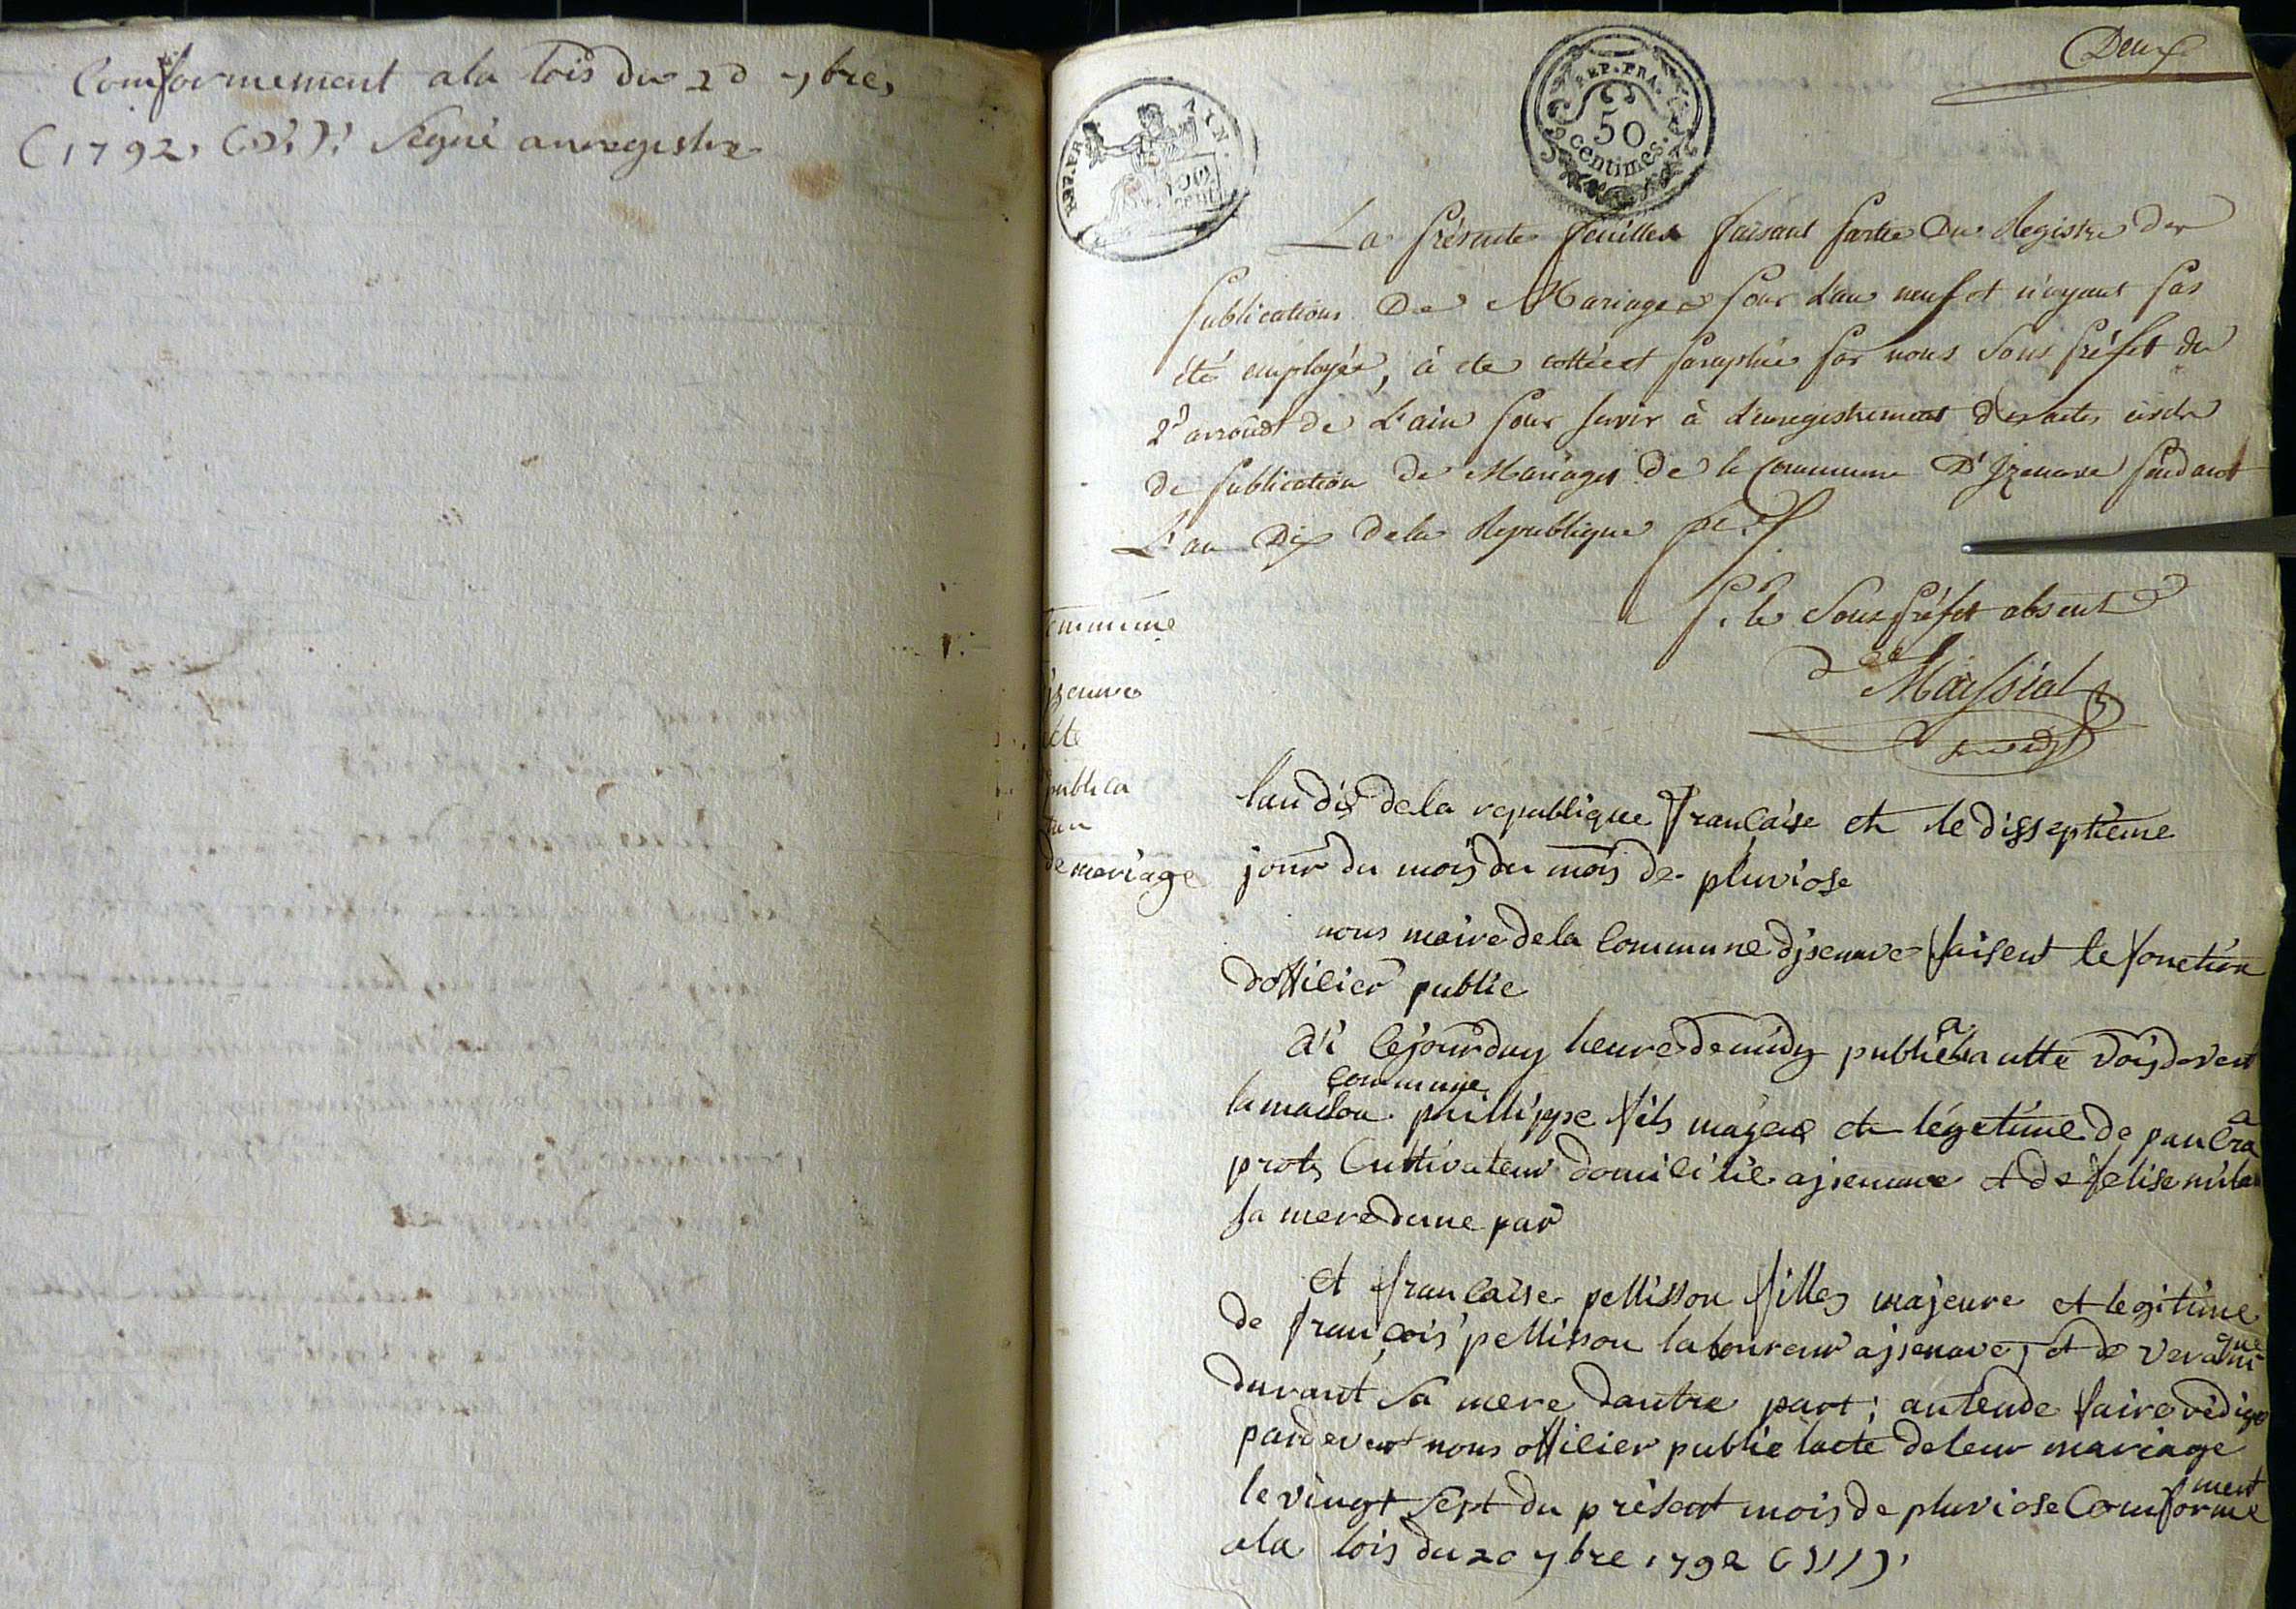 Comformement ala lois du 20 7bre,
(1792, (v.s.): Segné anregistre
Deux
REP. FRA.
50
centimes.
REP. FR
La présente feuille faisant partie du Registre des
publications De Mariages pour l'an neuf et n'ayant pas
été employée, à été cottée et paraphée par nous Sous préfet du
2e arrondt de L'ain pour servir à l'enregistrement des actes
de publication de Mariages de la Commune D'Izenave pendant
L'an Dix de la Republique
p. le Sous préfet absent
commune
isenave
acte
publica
tion
de mariage
lan dix de la republique francaise et le disseptieme
jour du mois du mois de pluviose
nous maire de la Commune disenave faisent le fonction
dofficier public
ai cejourduy heure de midy publié a la autte vois devent
la maison commune phillippe fils majeur et légetime de pancra
prots Cultivateur domicilié a jsenave et de felise
sa mere dune par
et francaise pellisson filles majeure et legitime
de françois pellisson laboureur a jsenave, et de
durant sa mere dautre part; antende faire rédige
pardevent nous officier public lacte de leur mariage
le vingt sept du présent mois de pluviose Comformement
ala lois du 20 7bre 1792